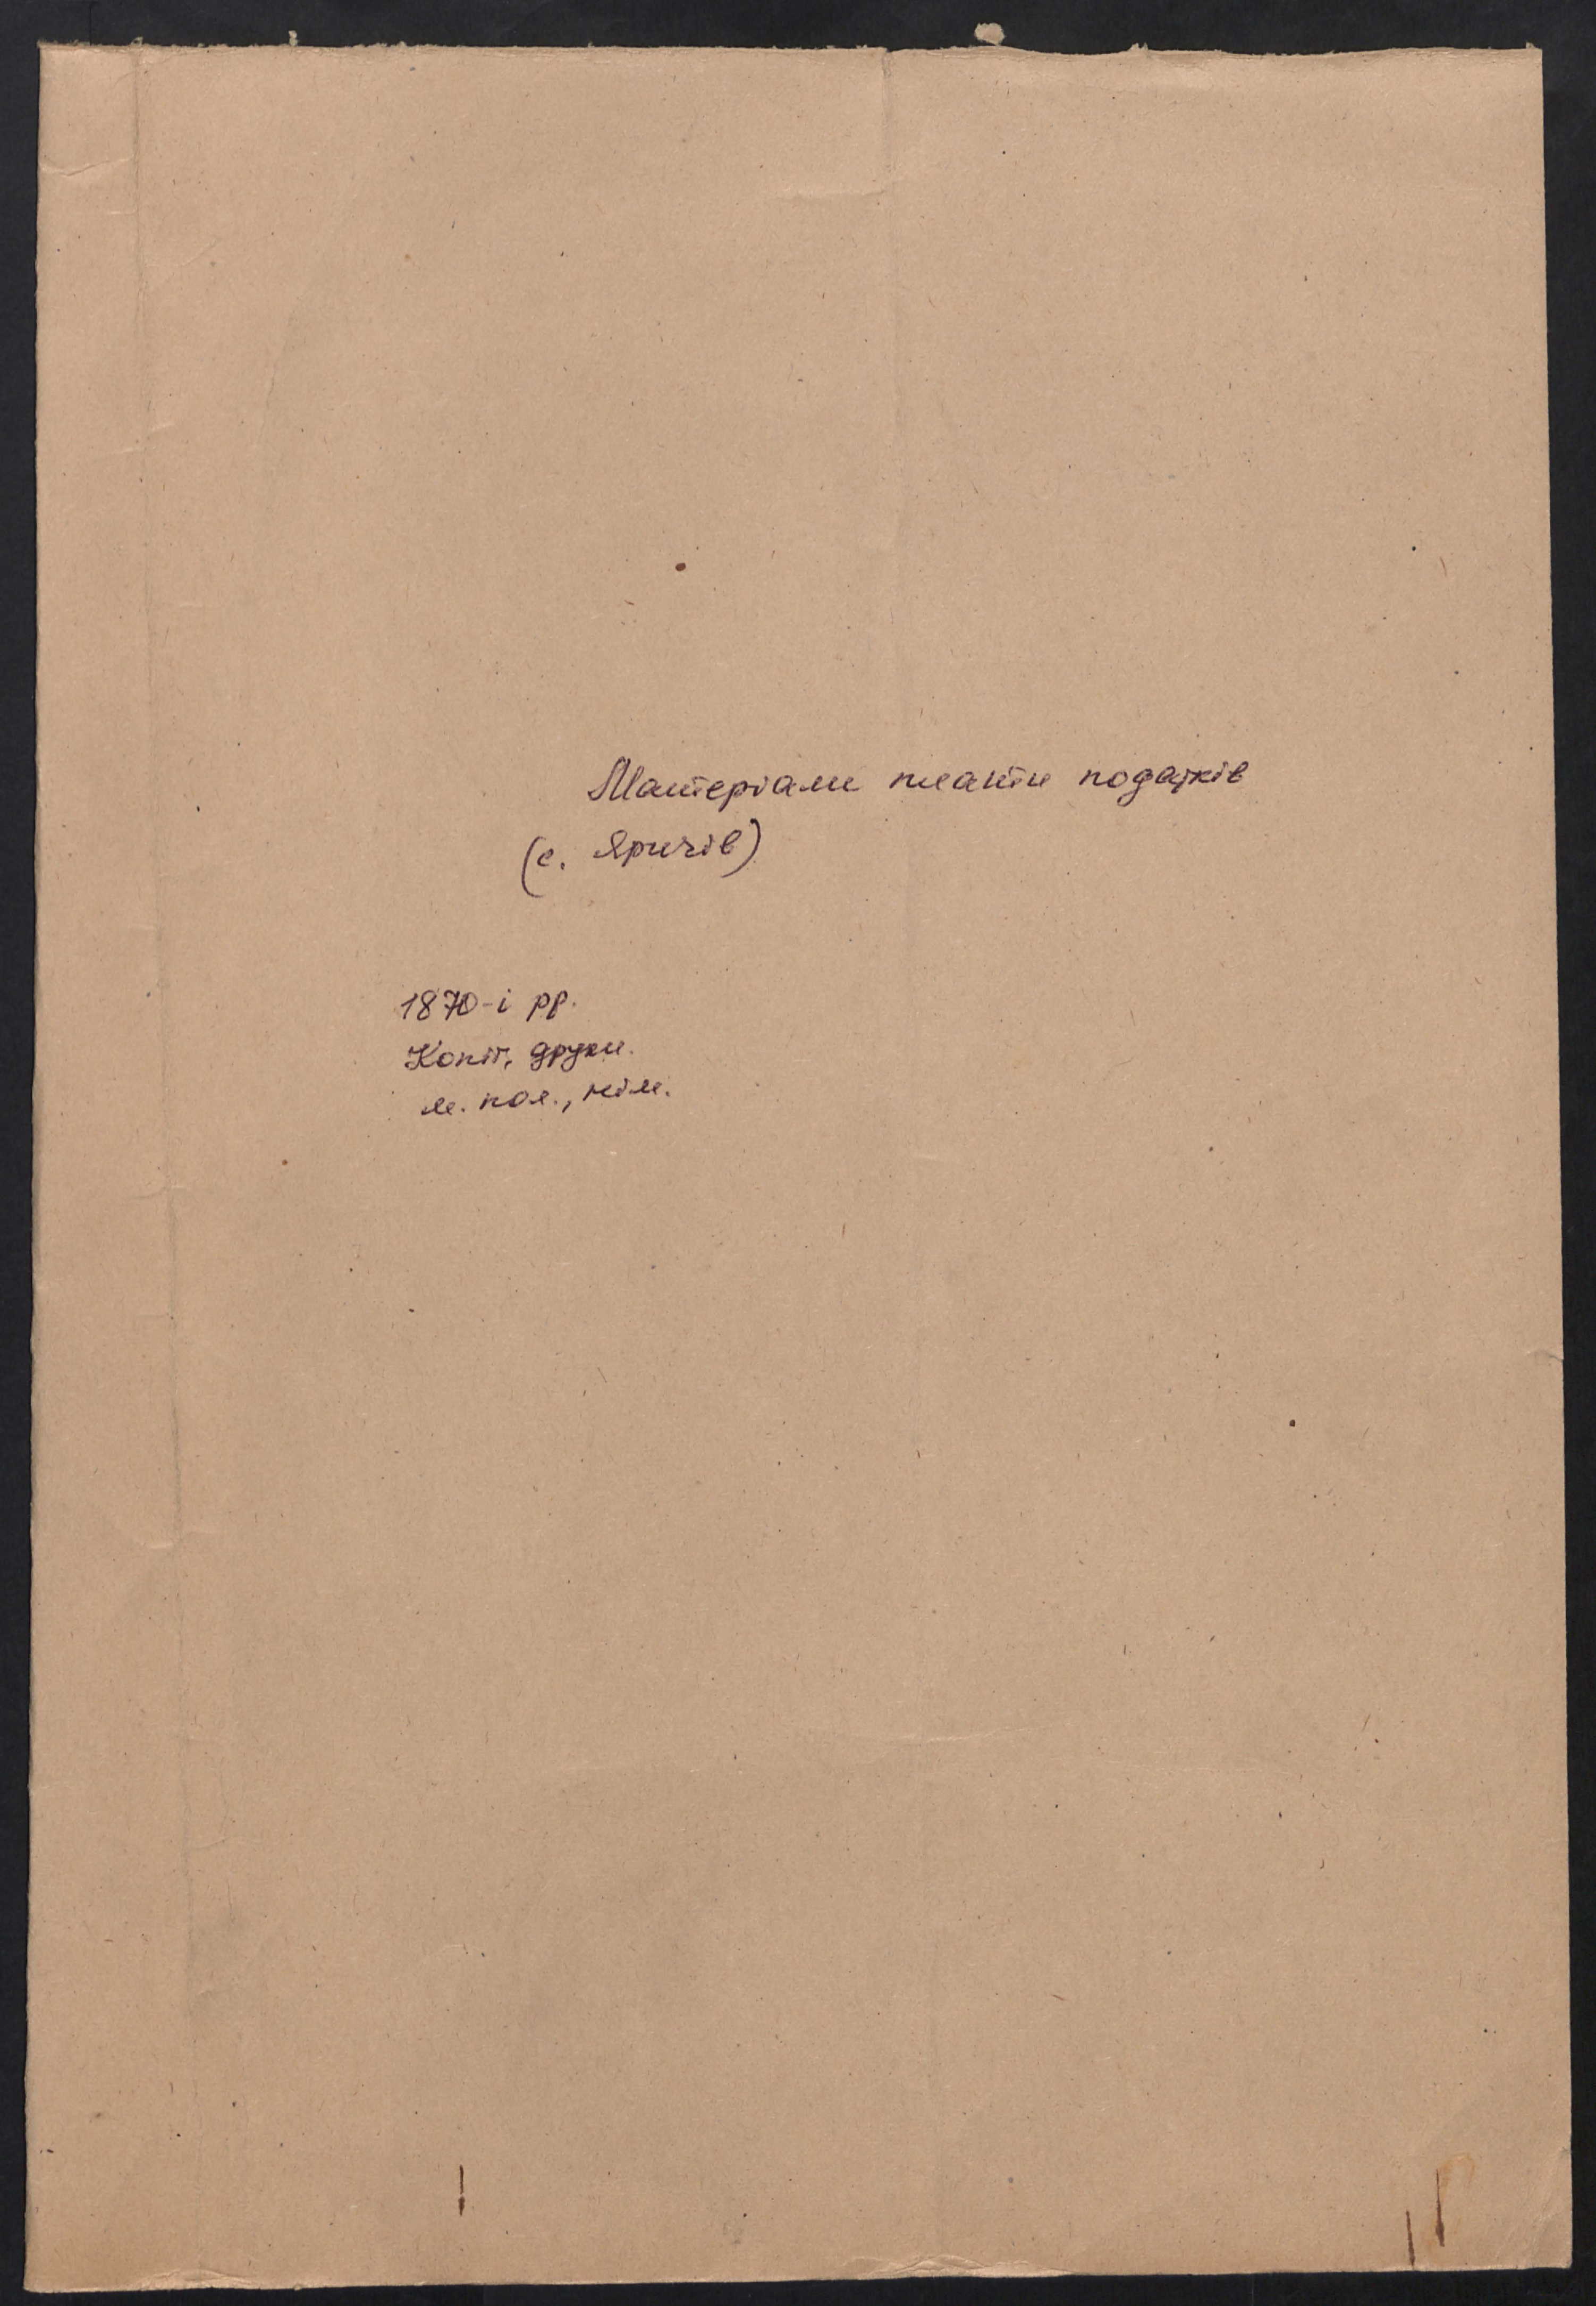 Матеріали плати податків
(с. Яричів)
1870-і рр.
Копії, друки.
м. пол., нім.